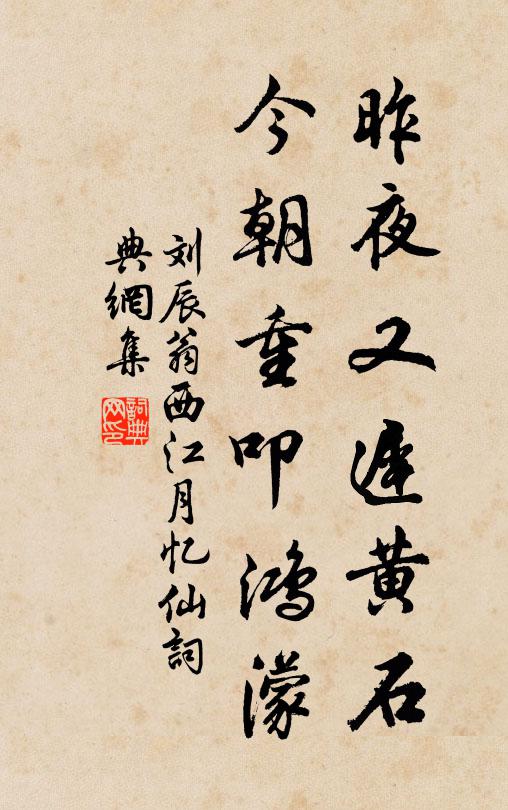 昨夜又遅黄石
今朝重叩鴻濛
刘辰翁西江月忆仙詞
典網集
詞典网印